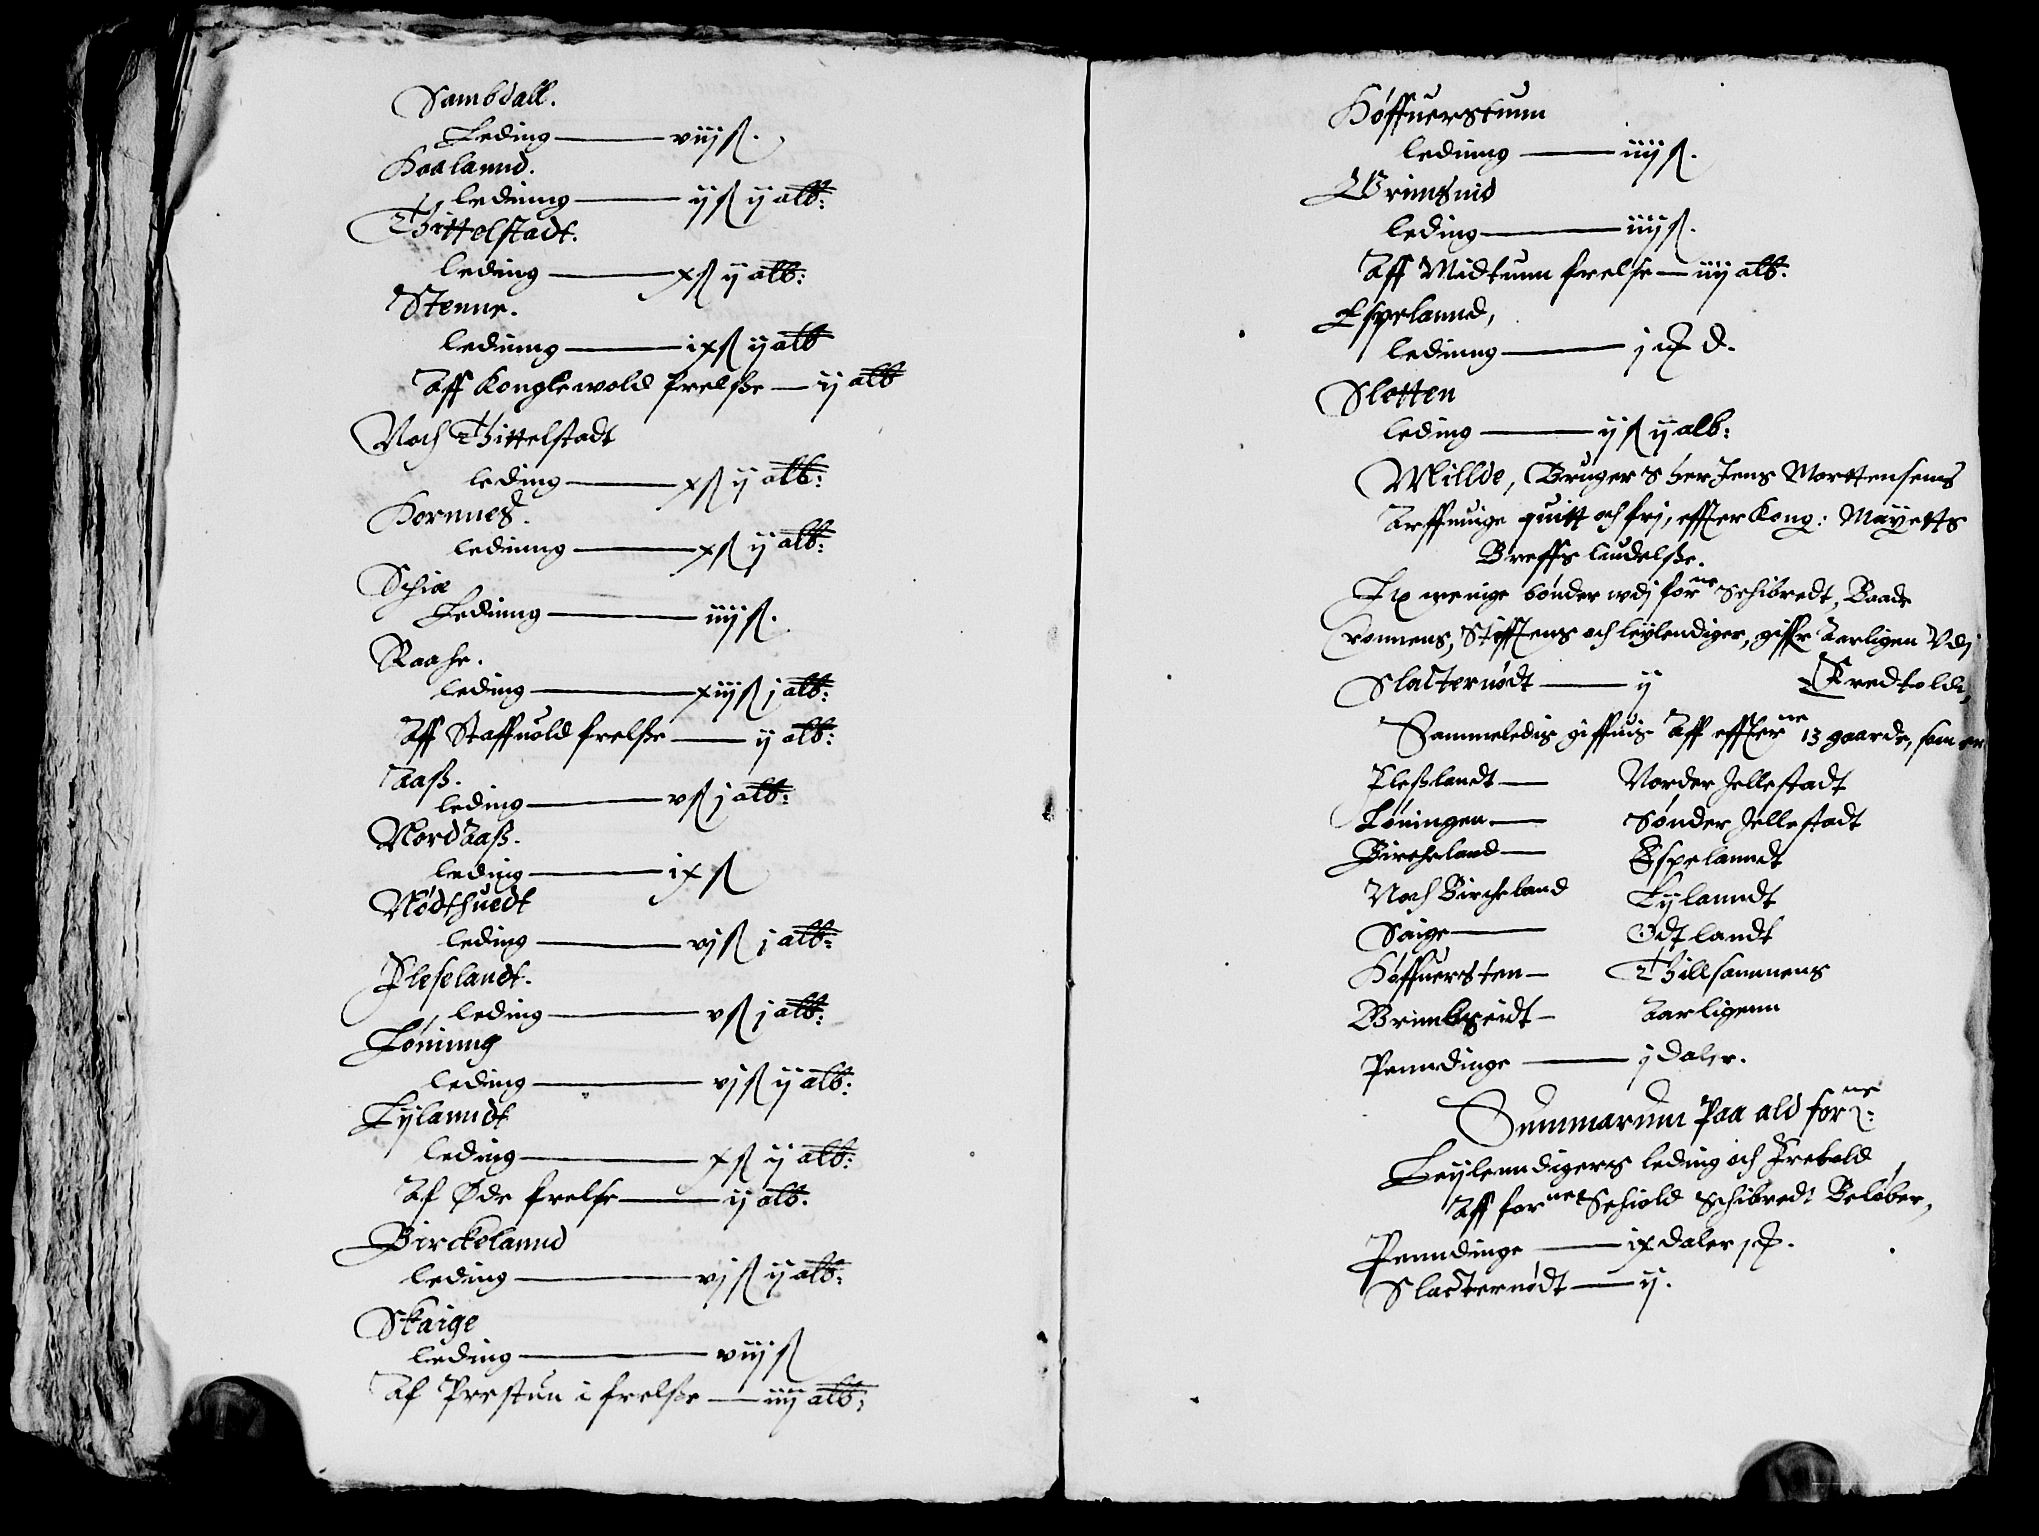 Sambdall.
Leding — viij ß.
Haalannd.
leding — ij ß ij alb:
Thittelstadt.
leding — x ß ij alb:
Stenne.
ledinng — ix ß ij alb
Aff Konglewold frelsse — ij alb
Noch Thittelstadt
leding — x ß ij alb:
Hornnes.
ledinng — x ß ij alb:
Schiæ
Ledinng — iiij ß.
Raahe.
leding — xiij ß j alb:
Aff Staffuold frelsse — ij alb:
Aaß.
leding — v ß j alb:
Nord Aaß.
leding — ix ß
Nødthuedt
leding — vj ß j alb:
Fleslandt.
leding — v ß j alb:
Lønning
leding — vj ß ij alb:
Lylanndt
leding — x ß ij alb:
Af Øde frelse — ij alb.
Birckelannd
leding — vj ß ij alb:
Skaige
leding — viij ß
Af Prestun i frelsse — iiij alb:
Høffuerstunn
ledinng — iiij ß.
Grimsuid
leding — iiij ß.
Aff Midtunn frelse — iiij alb.
Espelannd,
ledinng — j d.
Sletten
leding — ij ß ij alb:
Millde, Bruger S her Jens Morttensens
Arffuinge quitt och frj, effter Kong: Mayetts
Breffs liudelsse.
menige bønder wdj forne Schibredt, Baade
Cronnens, Stifftens och leylendiger, giffr Aarligen Vdj
Slacternødt — ij Fredtold,
Sammeledis giffuis Aff effterne 13 gaarde, som er
Fleßlandt — Norder Jellestadt
Løningen — Sønder Jellestadt
Bircheland — Espelanndt
Noch Bircheland Lylanndt
Saige — Odtlandt
Høffuersten — Thillsammens
Grimbseidt — Aarligenn
Penndinge — j daler.
Summarum Paa ald forne:
Leylenndigers leding och Fretold
Aff forne Schiold Schibredt Beløber,
Penndinge — ix daler j
Slacternødt — ij.